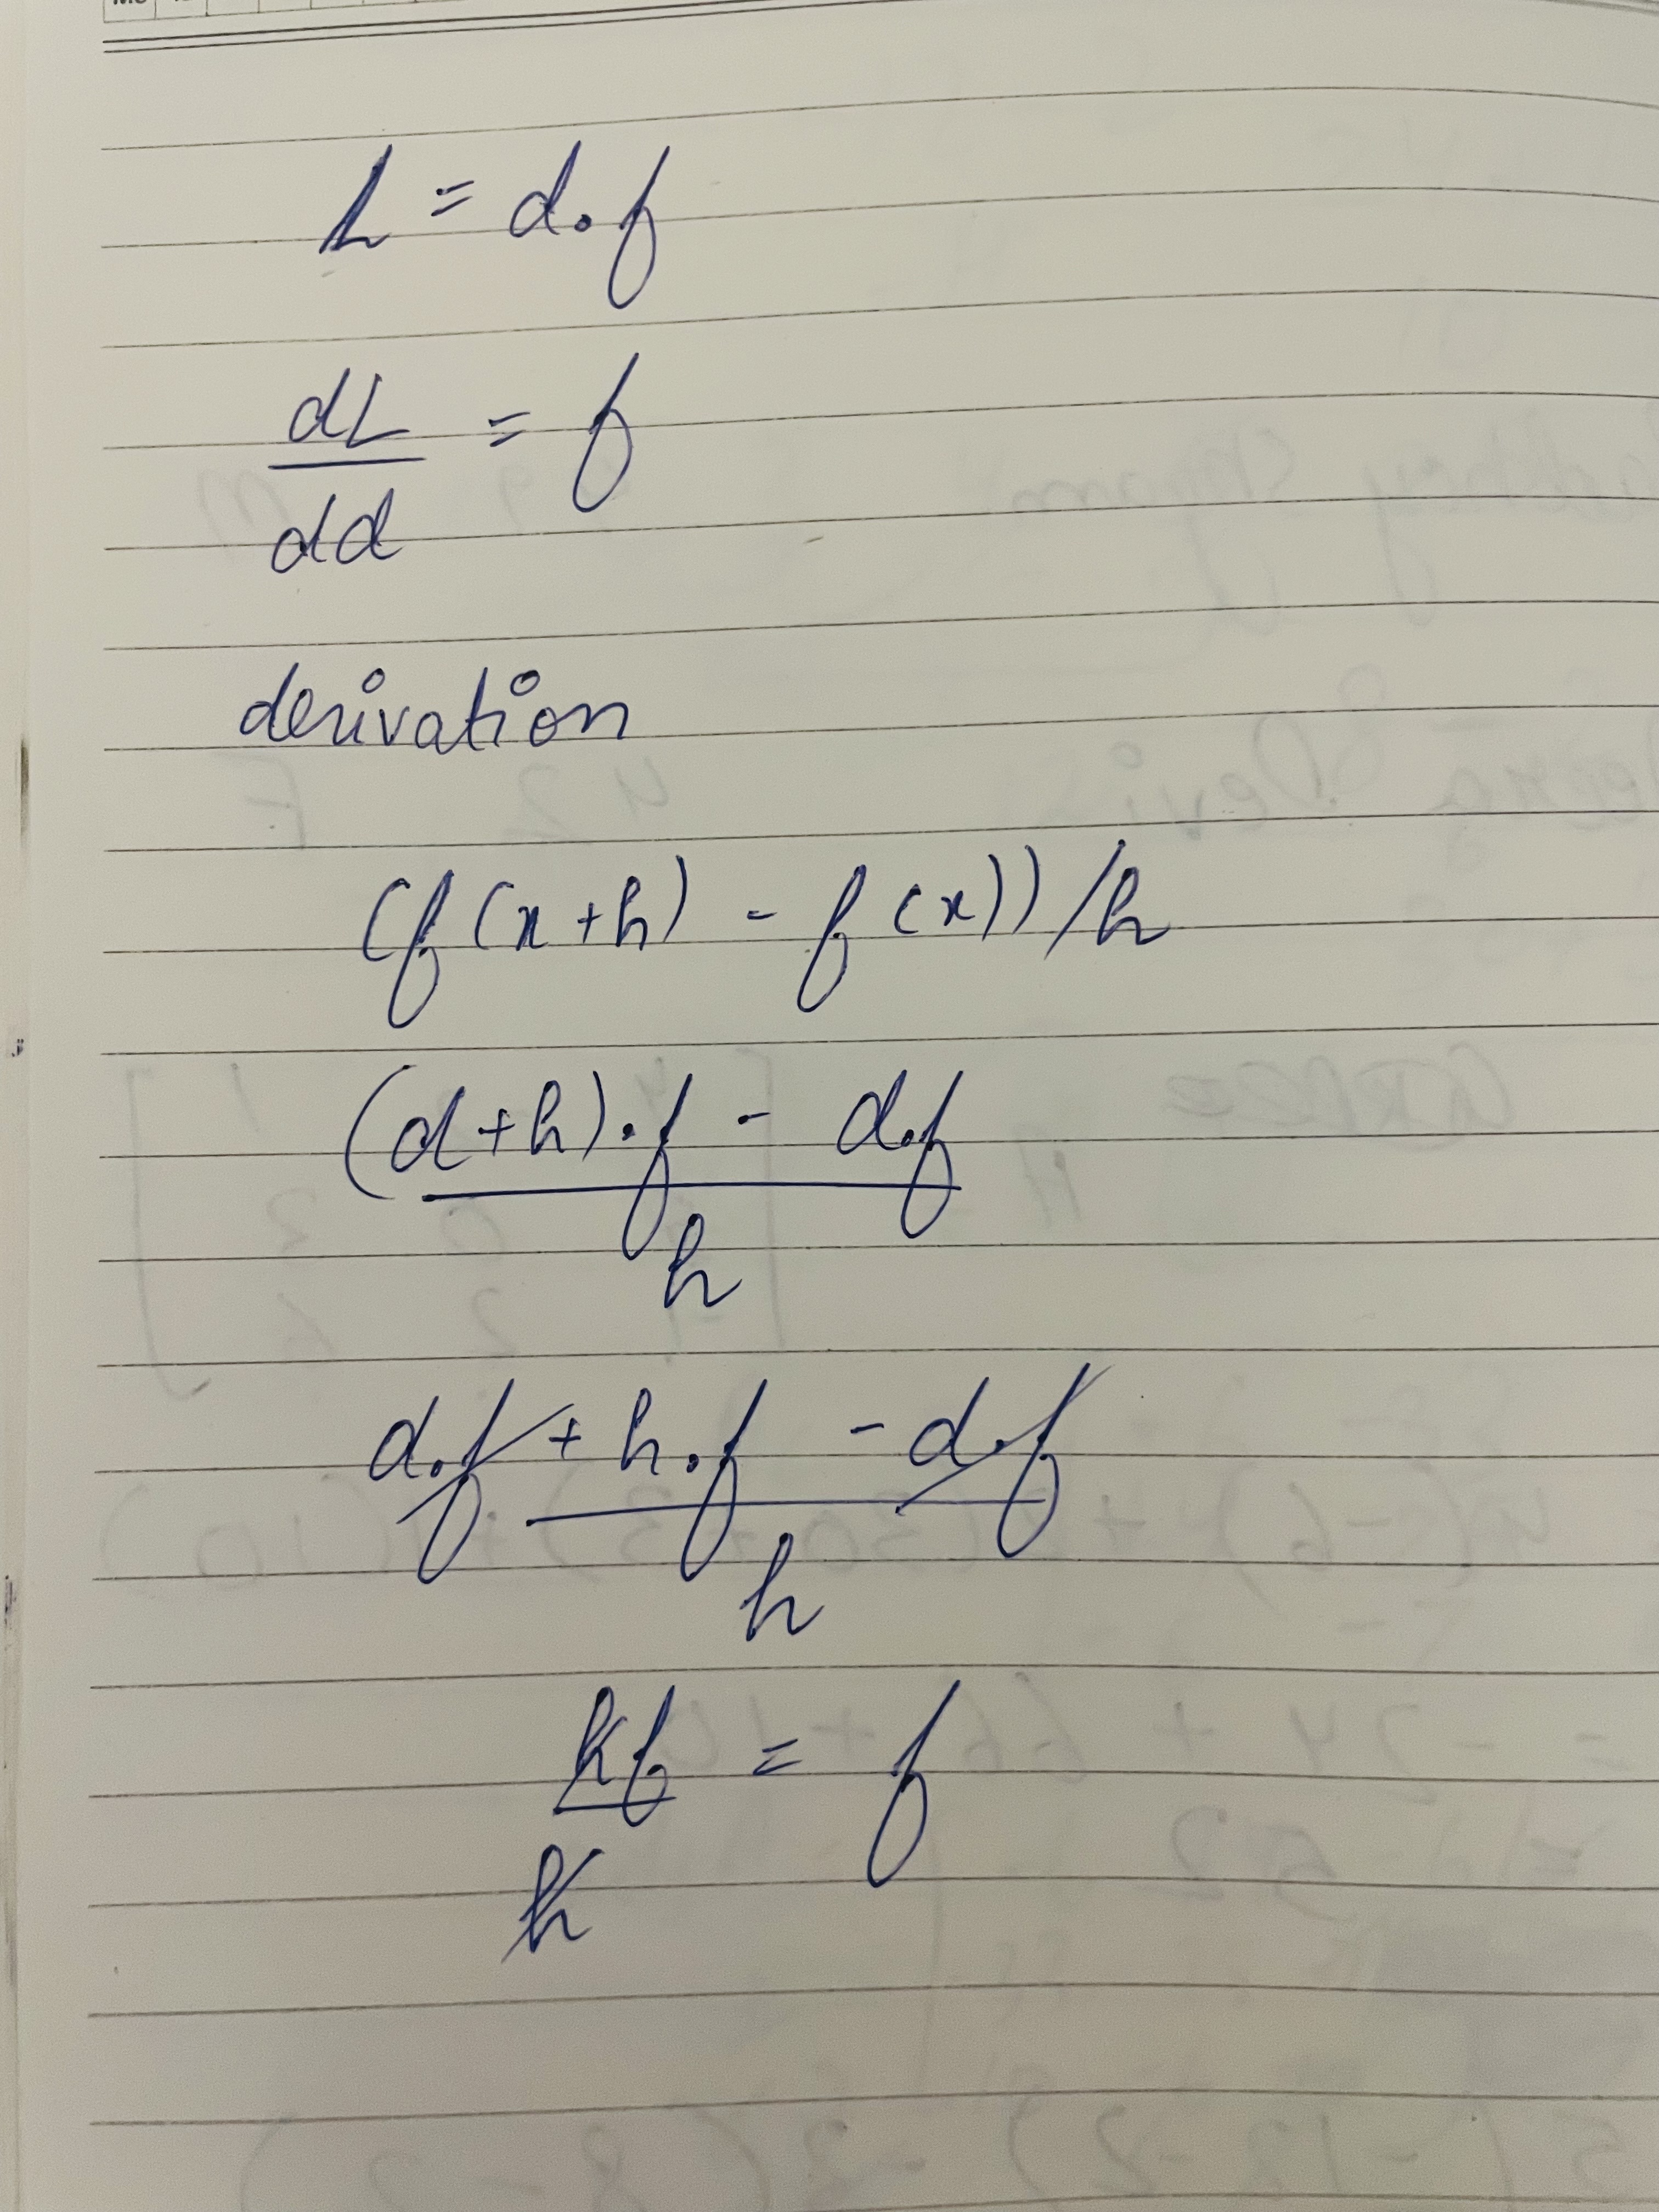 L = d.f
dL
── = f
dd
derivation
(f(x+h) - f(x))/h
(d+h).f - d.f
─────────
h
d.f + h.f - d.f
─────────
h
hf
── = f
h